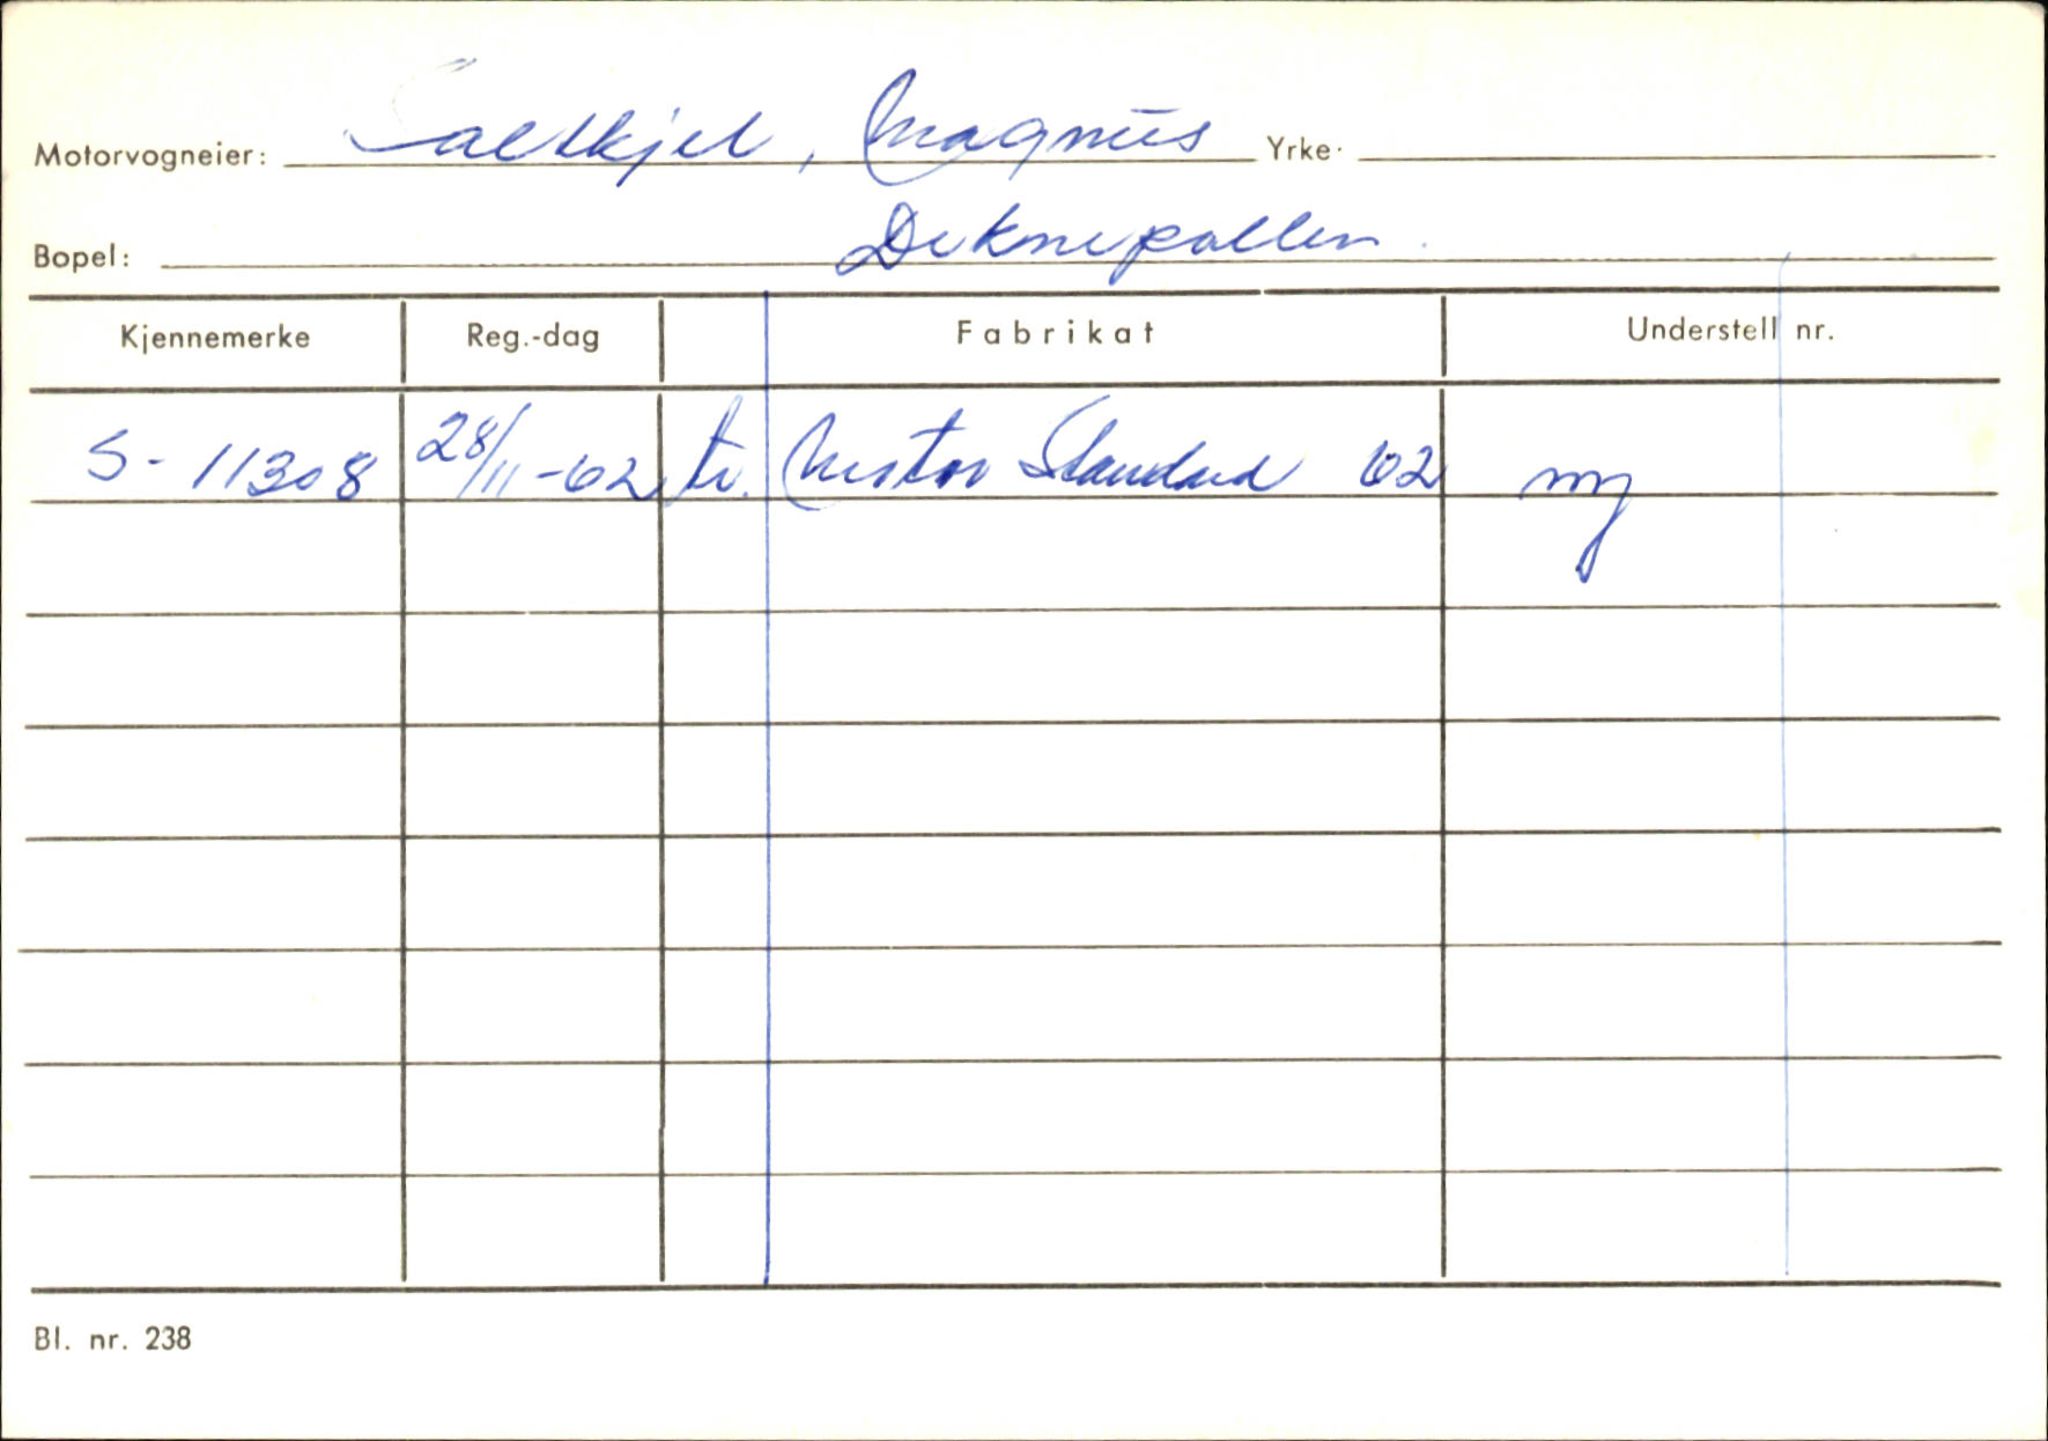 Motorvogneier: Saltkjel, Magnus Yrke:
Bopel: Deknepollen
Kjennemerke Reg.-dag Fabrikat Understell nr.
S-11308 28/11-62 tr. Motor Standard 62 ny
Bl. nr. 238